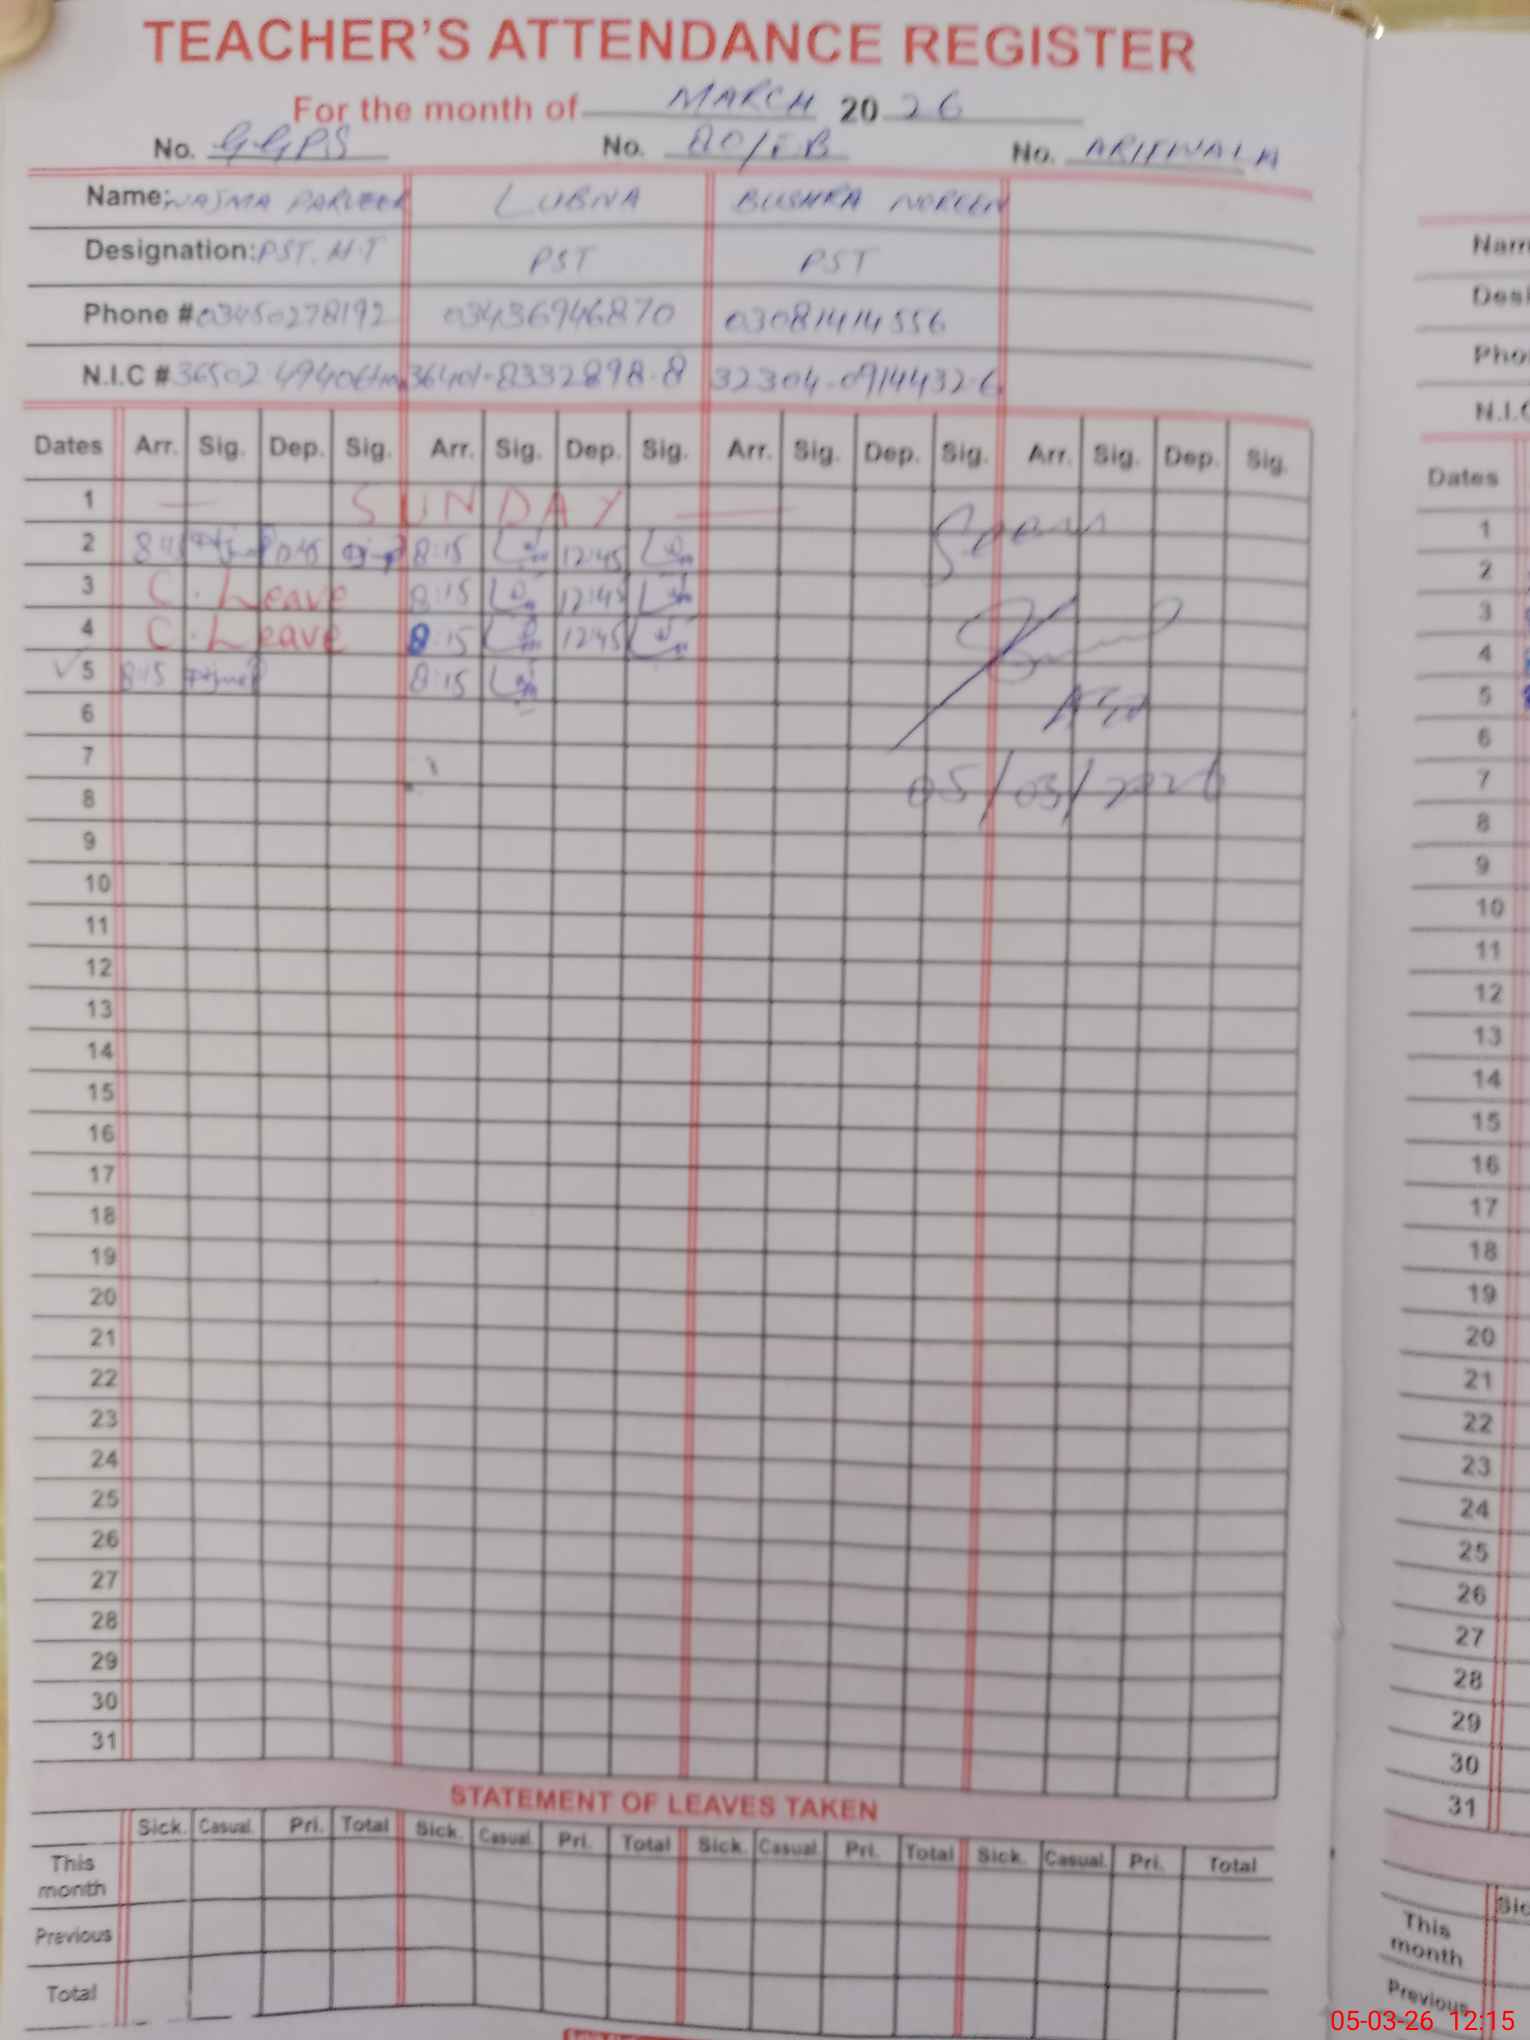 TEACHER'S ATTENDANCE REGISTER
For the month of MARCH 2026
No. GGPS No. 80/EB No. ARIFWALA
Name: NAJMA PARVEEN LUBNA BUSHRA NOREEN
Designation: PST. H.T PST PST
Phone # 03450278192 03436946870 03081414556
N.I.C # 36502 36401-8332898-8 32304-0914432-6
Dates Arr. Sig. Dep. Sig. Arr. Sig. Dep. Sig. Arr. Sig. Dep. Sig. Arr. Sig. Dep. Sig.
1 — SUNDAY —
2 8:15 8:15 12:45
3 C. Leave 8:15 12:45
4 C. Leave 8:15 12:45
5 8:15 8:15
6
7
8 05/03/2026
9
10
11
12
13
14
15
16
17
18
19
20
21
22
23
24
25
26
27
28
29
30
31
STATEMENT OF LEAVES TAKEN
Sick. Casual. Pri. Total Sick. Casual. Pri. Total Sick. Casual. Pri. Total Sick. Casual. Pri. Total
This month
Previous
Total
Dates
1
2
3
4
5
6
7
8
9
10
11
12
13
14
15
16
17
18
19
20
21
22
23
24
25
26
27
28
29
30
31
This month
Previous
05-03-26 12:15